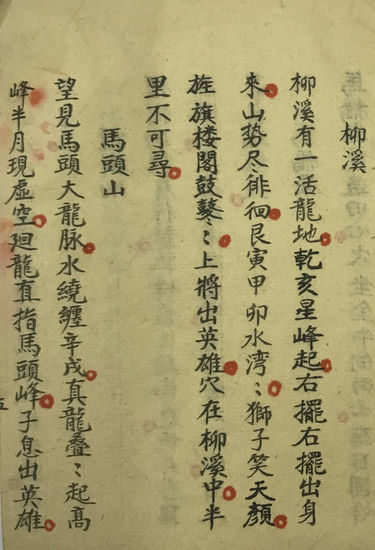 柳溪
柳溪有一活龍地乾亥星峰起右擺右擺出身
來山势尽徘徊艮寅甲卯水湾〻獅子笑天顔
旌旗楼閣鼓鼕〻上將出英雄穴在柳溪中半
里不可尋
馬頭山
望見馬頭大龍脉水繞纏辛戌真龍叠〻起高
峰半月現虛空廻龍直指馬頭峰子息出英雄
五